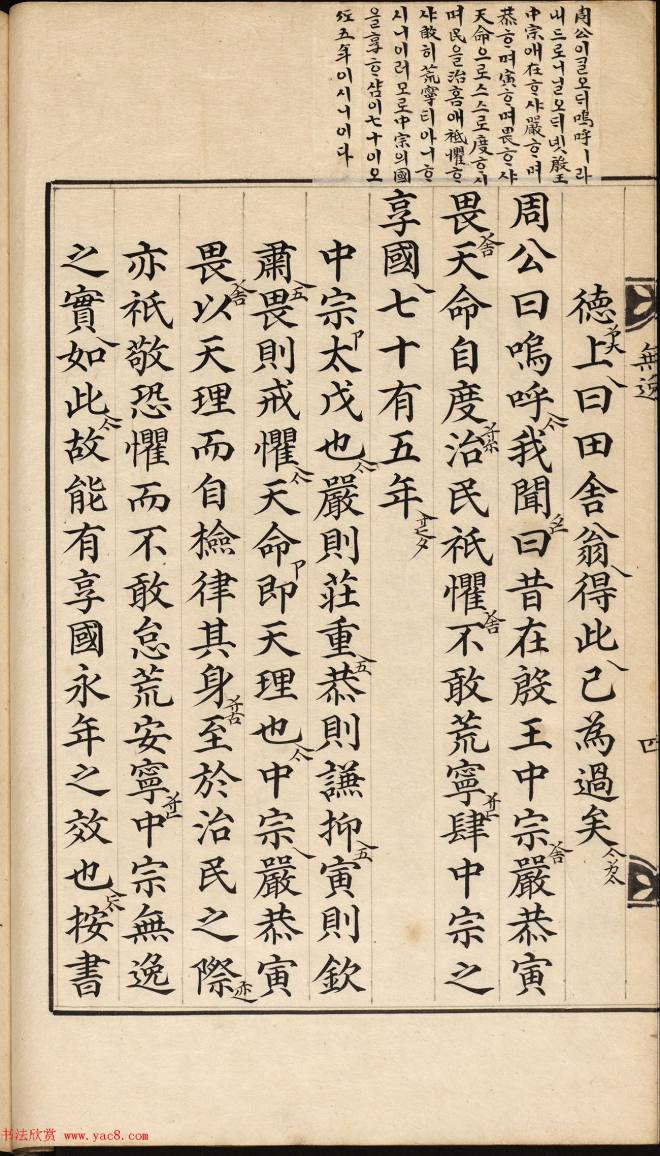 周公이ᄀᆞᆯ오ᄃᆡ嗚呼ㅣ라
내드로니닐오ᄃᆡ녯殷王
中宗애在ᄒᆞ샤嚴ᄒᆞ며
恭ᄒᆞ며寅ᄒᆞ며畏ᄒᆞ샤
天命으로스스로度ᄒᆞ시
며民을治홈애祗懼ᄒᆞ
샤敢히荒寧티아니ᄒᆞ
시니이러모로中宗의國
을享ᄒᆞ샴이七十이오
五年이시니이다
無逸
四
德上曰田舍翁得此已為過矣
周公曰嗚呼我聞曰昔在殷王中宗嚴恭寅
畏天命自度治民祗懼不敢荒寧肆中宗之
享國七十有五年
中宗太戊也嚴則莊重恭則謙抑寅則欽
肅畏則戒懼天命即天理也中宗嚴恭寅
畏以天理而自檢律其身至於治民之際
亦祗敬恐懼而不敢怠荒安寧中宗無逸
之實如此故能有享國永年之效也按書
书法欣赏 www.yac8.com